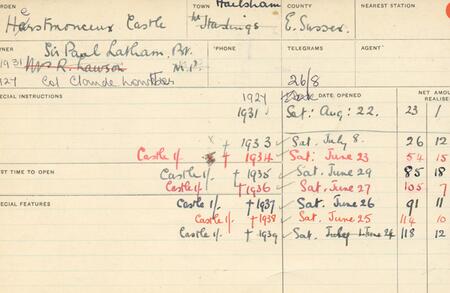 RDEN TOWN Hailsham COUNTY NEAREST STATION
Herstmonceux Castle Nr Hastings E. Sussex.
WNER Sir Paul Latham, Bt. PHONE TELEGRAMS AGENT
1931 Mrs R. Lawson M.P.
1927 Col Claude Lowther 26/8
ECIAL INSTRUCTIONS 1927 DATE OPENED NET AMOU REALISE
1931 ✓ Sat: Aug: 22. 23 1
x † 1933 ✓ Sat. July 8. 26 12
Castle 1/. † 1934 ✓ Sat: June 23 54 15
ST TIME TO OPEN Castle 1/. † 1935 ✓ Sat. June 29 85 18
Castle 1/ † 1936 ✓ Sat. June 27 105 7
ECIAL FEATURES Castle 1/. † 1937 ✓ Sat. June 26 91 11
Castle 1/. † 1938 ✓ Sat. June 25 114 10
Castle 1/. † 1939 ✓ Sat. July 1 June 24 118 12